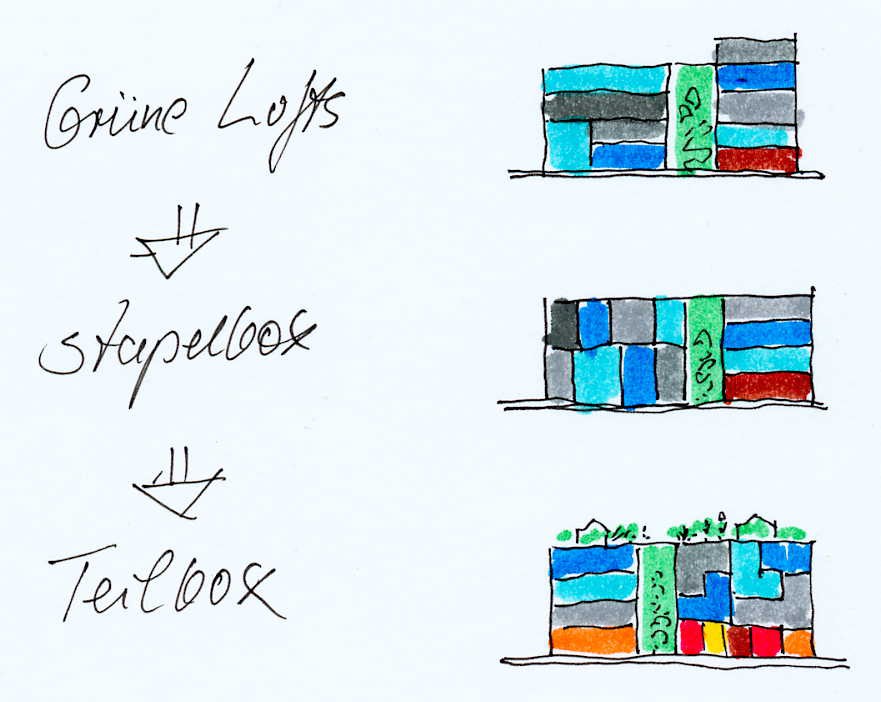 Grüne Lofts
stapelbox
Teilbox